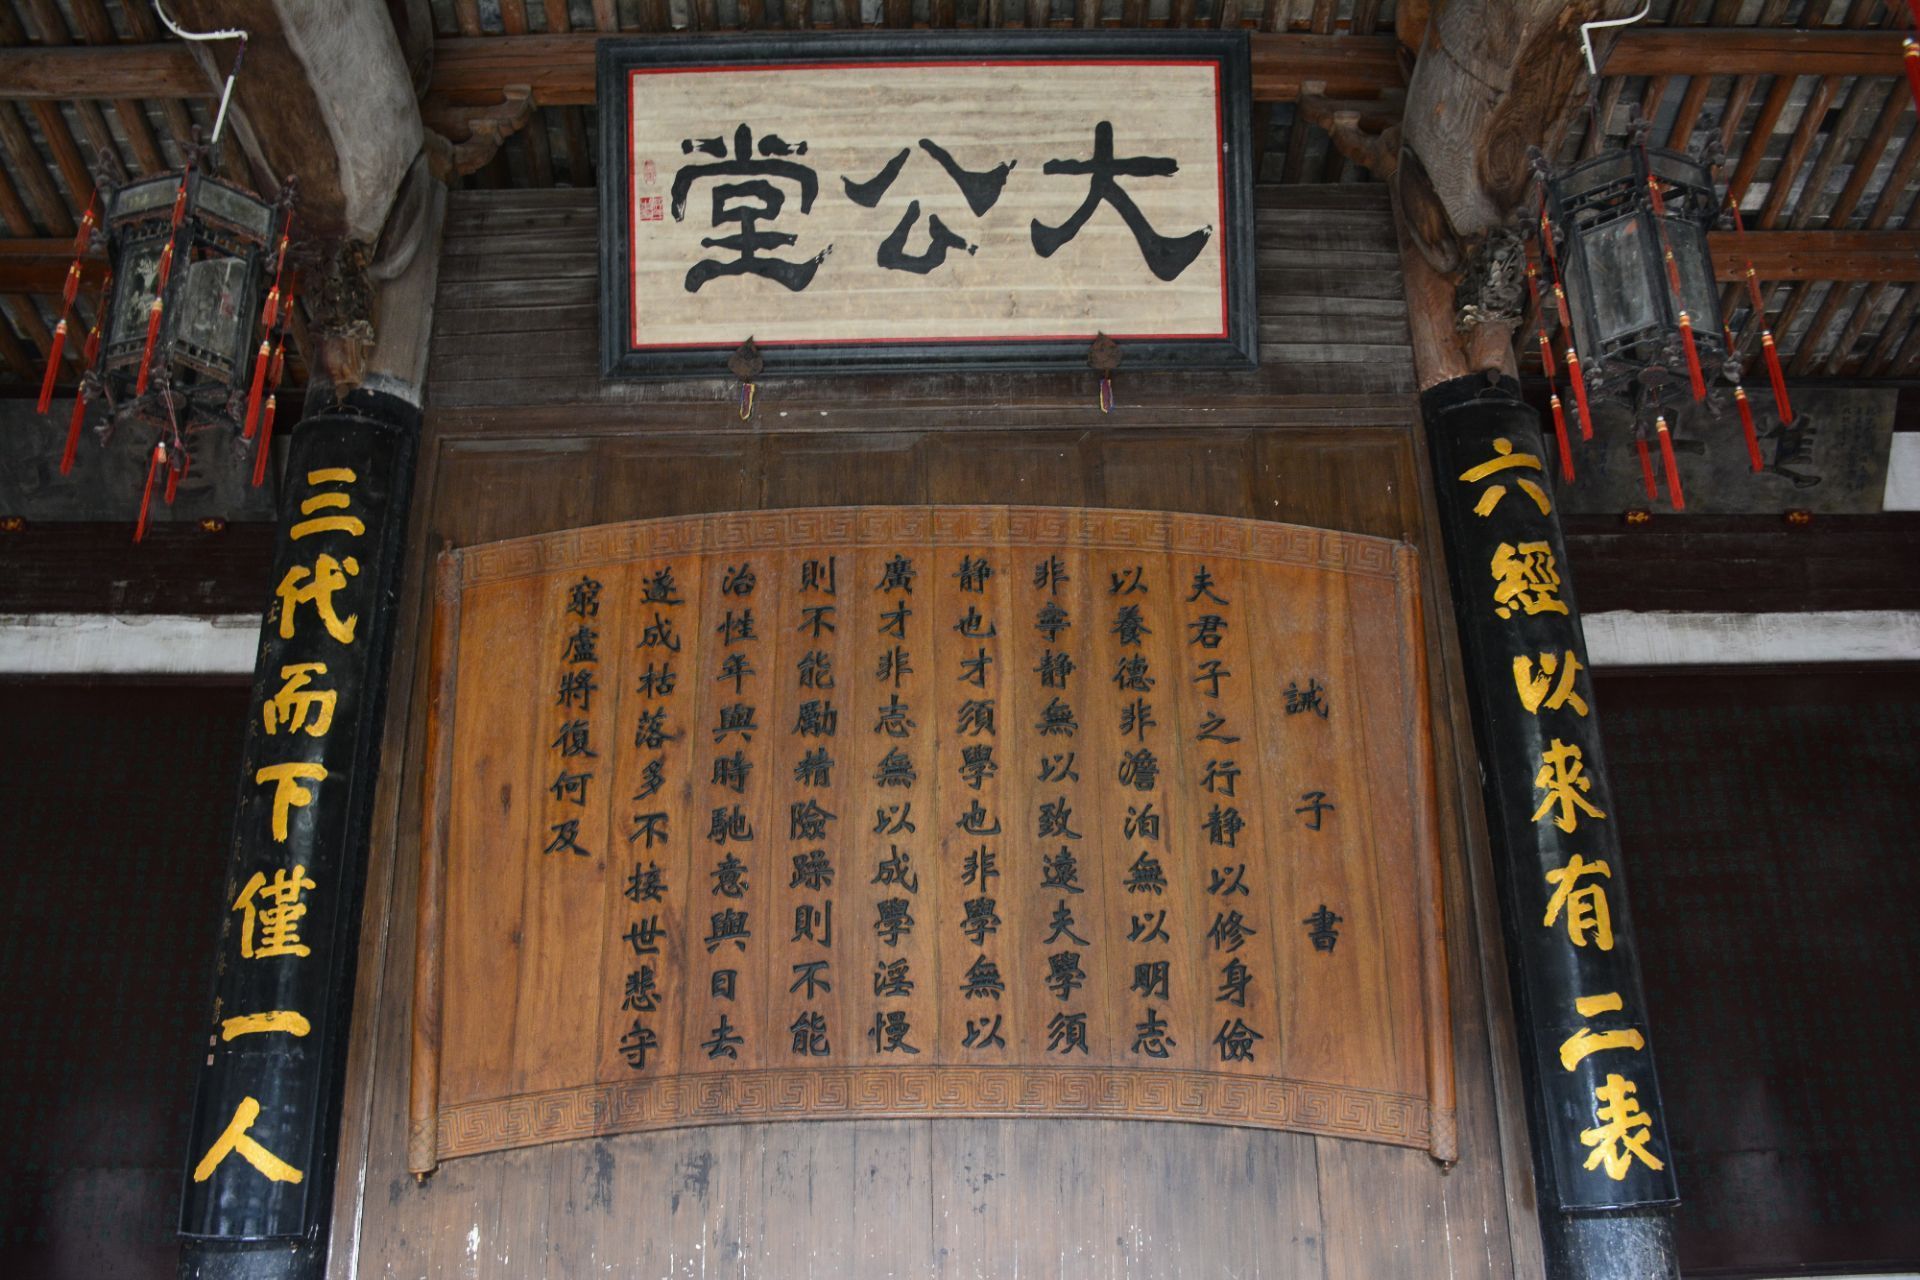 大公堂
六經以來有二表
三代而下僅一人
誡子書
夫君子之行静以修身儉
以養德非澹泊無以明志
非寧静無以致遠夫學須
静也才須學也非學無以
廣才非志無以成學淫慢
則不能勵精險躁則不能
治性年與時馳意與日去
遂成枯落多不接世悲守
窮廬將復何及